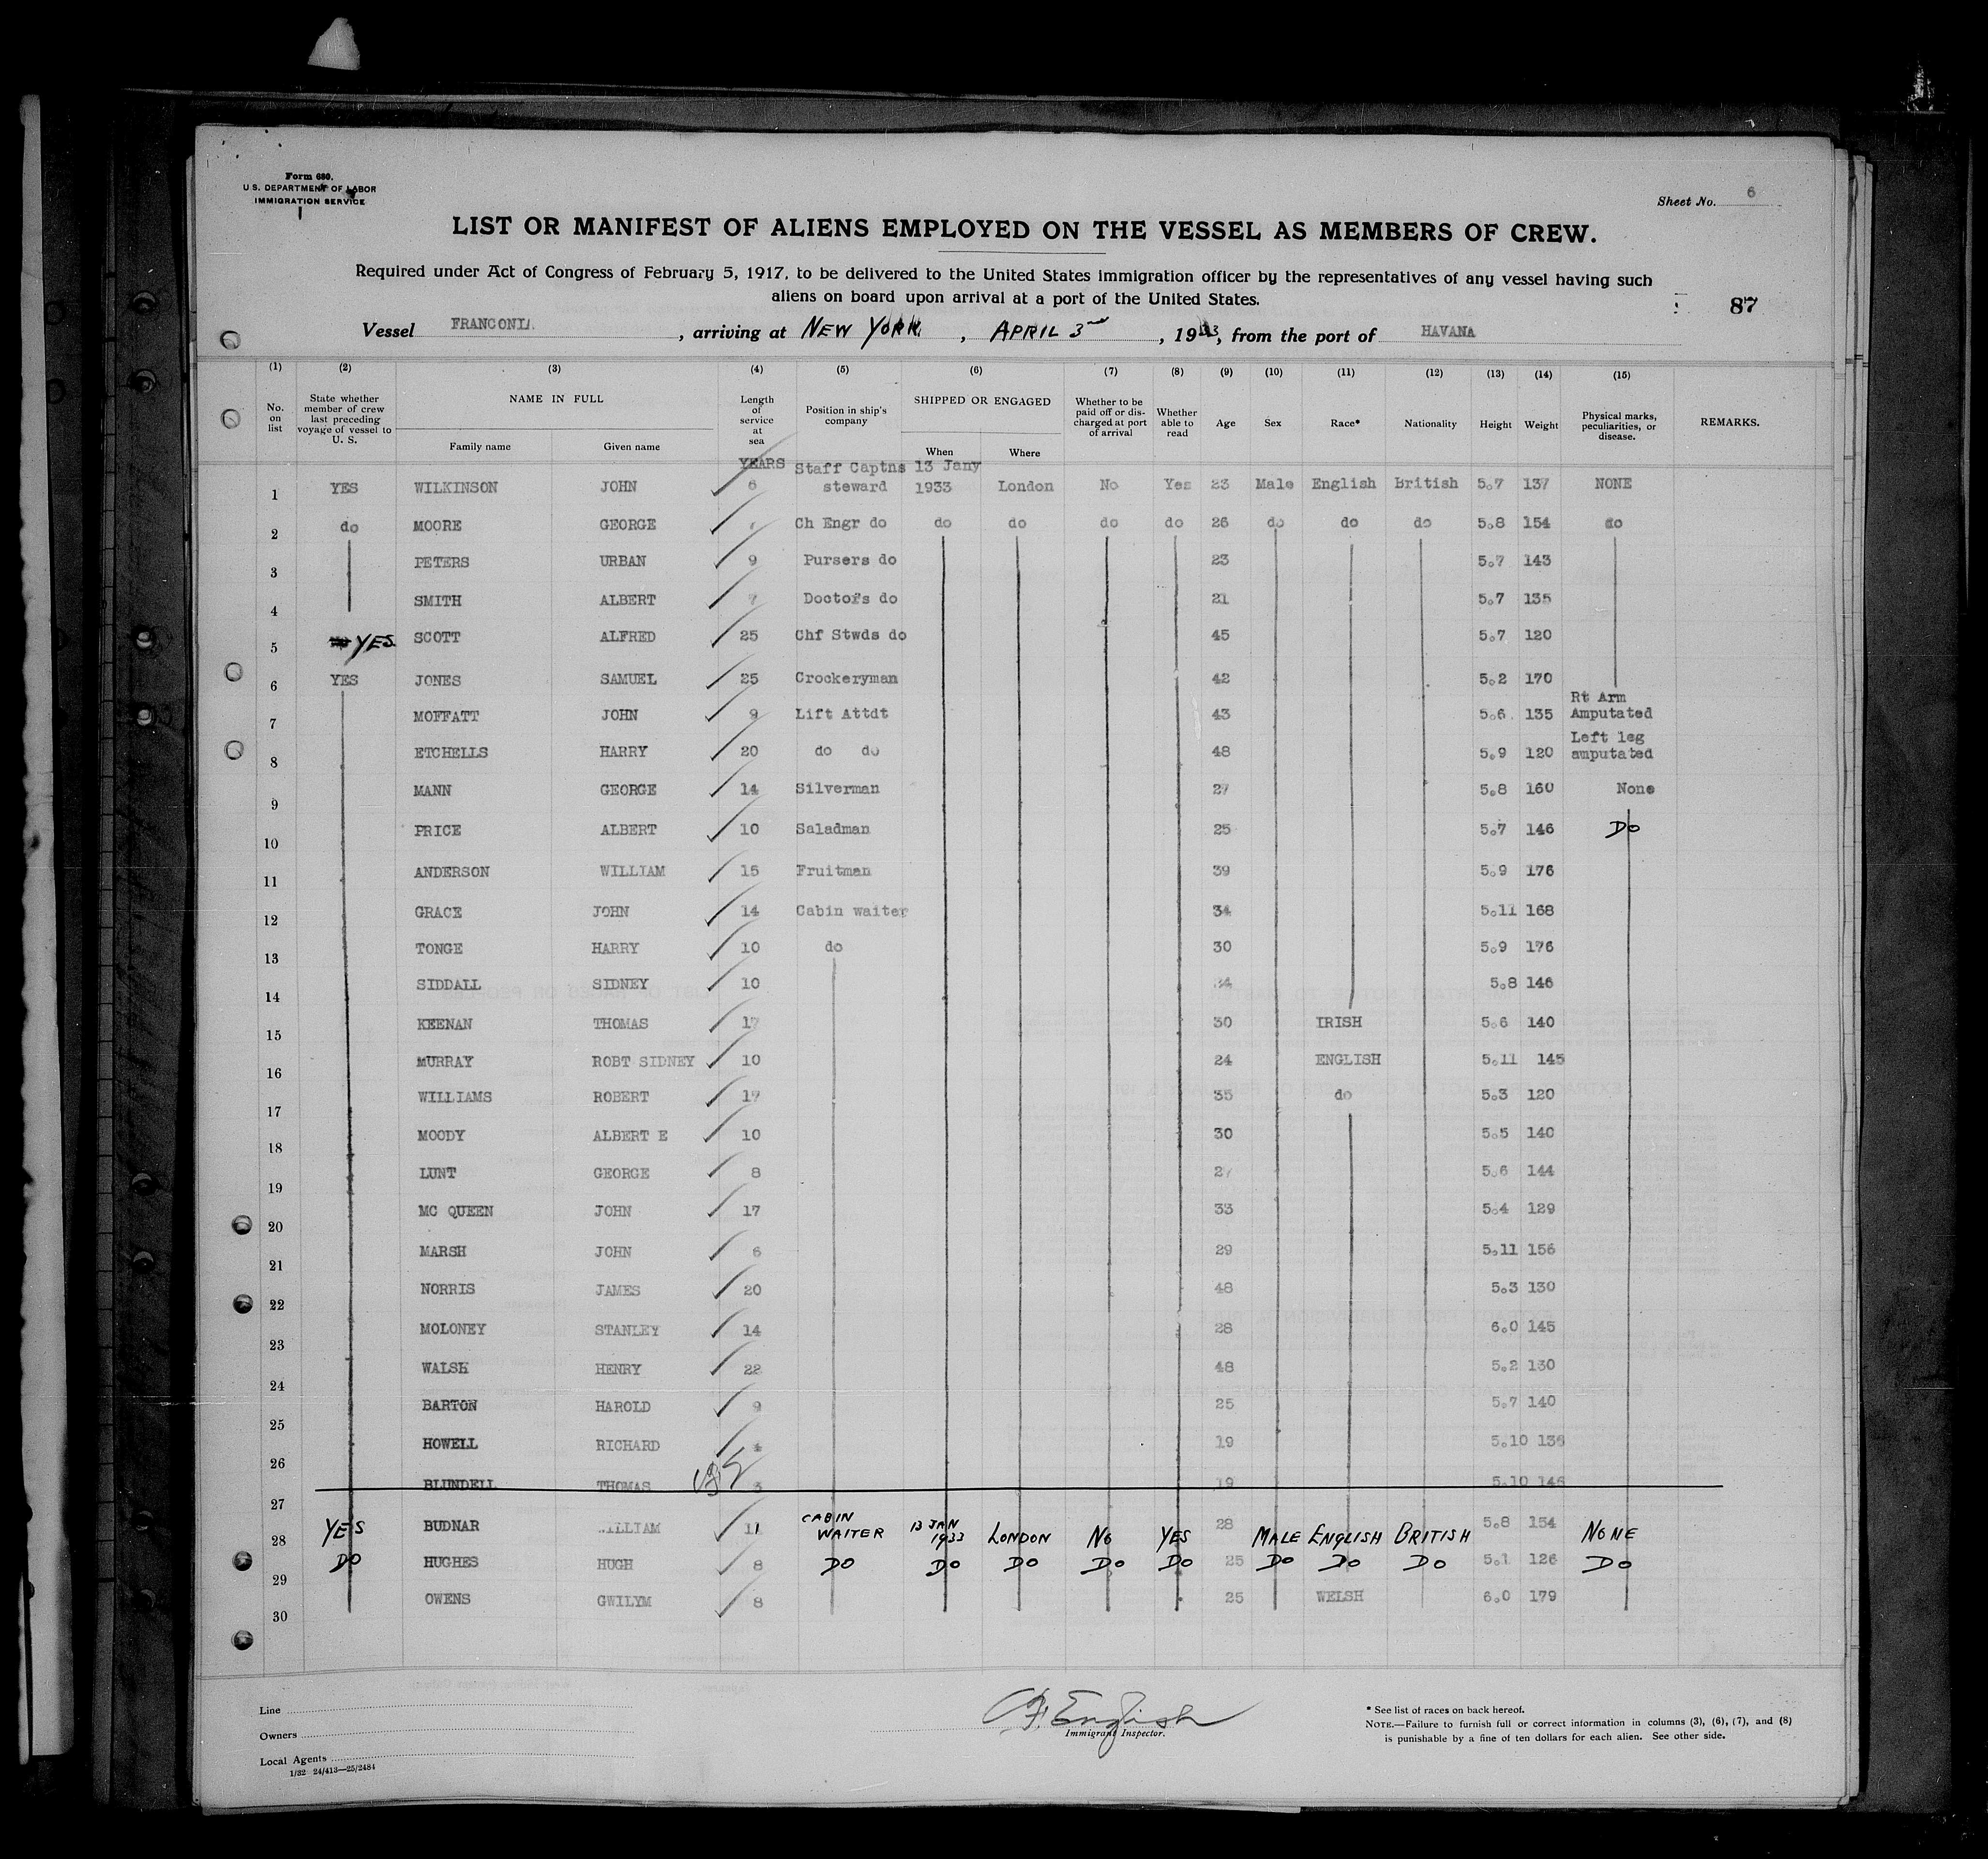 Form 680.
U.S. DEPARTMENT OF LABOR
IMMIGRATION SERVICE
Sheet No. 6
LIST OR MANIFEST OF ALIENS EMPLOYED ON THE VESSEL AS MEMBERS OF CREW.
Required under Act of Congress of February 5, 1917, to be delivered to the United States immigration officer by the representatives of any vessel having such
aliens on board upon arrival at a port of the United States.
87
Vessel FRANCONIA , arriving at NEW YORK , APRIL 3rd , 1933, from the port of HAVANA
(1) (2) (3) (4) (5) (6) (7) (8) (9) (10) (11) (12) (13) (14) (15)
No. on list
State whether member of crew last preceding voyage of vessel to U. S.
NAME IN FULL
Family name Given name
Length of service at sea
Position in ship's company
SHIPPED OR ENGAGED
When Where
Whether to be paid off or discharged at port of arrival
Whether able to read
Age Sex Race* Nationality Height Weight
Physical marks, peculiarities, or disease.
REMARKS.
YEARS Staff Captns 13 Jany
1 YES WILKINSON JOHN 6 steward 1933 London No Yes 23 Male English British 5.7 137 NONE
2 do MOORE GEORGE Ch Engr do do do do do 26 do do do 5.8 154 do
3 PETERS URBAN 9 Pursers do 23 5.7 143
4 SMITH ALBERT 7 Doctors do 21 5.7 135
5 YES SCOTT ALFRED 25 Chf Stwds do 45 5.7 120
6 YES JONES SAMUEL 25 Crockeryman 42 5.2 170
7 MOFFATT JOHN 9 Lift Attdt 43 5.6 135 Rt Arm Amputated
8 ETCHELLS HARRY 20 do do 48 5.9 120 Left leg amputated
9 MANN GEORGE 14 Silverman 27 5.8 160 None
10 PRICE ALBERT 10 Saladman 25 5.7 146 DO
11 ANDERSON WILLIAM 15 Fruitman 39 5.9 176
12 GRACE JOHN 14 Cabin waiter 34 5.11 168
13 TONGE HARRY 10 do 30 5.9 176
14 SIDDALL SIDNEY 10 24 5.8 146
15 KEENAN THOMAS 17 30 IRISH 5.6 140
16 MURRAY ROBT SIDNEY 10 24 ENGLISH 5.11 145
17 WILLIAMS ROBERT 17 35 do 5.3 120
18 MOODY ALBERT E 10 30 5.5 140
19 LUNT GEORGE 8 27 5.6 144
20 MC QUEEN JOHN 17 33 5.4 129
21 MARSH JOHN 6 29 5.11 156
22 NORRIS JAMES 20 48 5.3 130
23 MOLONEY STANLEY 14 28 6.0 145
24 WALSH HENRY 22 48 5.2 130
25 BARTON HAROLD 9 25 5.7 140
26 HOWELL RICHARD 4 19 5.10 136
27 BLUNDELL THOMAS 3 19 5.10 146
28 YES BUDNAR WILLIAM 11 CABIN WAITER 13 JAN 1933 LONDON NO YES 28 MALE ENGLISH BRITISH 5.8 154 NONE
29 DO HUGHES HUGH 8 DO DO DO DO DO 25 DO DO DO 5.1 126 DO
30 OWENS GWILYM 8 25 WELSH 6.0 179
Line
Owners
Local Agents
1/32 24/413—25/2484
English
Immigrant Inspector.
* See list of races on back hereof.
NOTE.—Failure to furnish full or correct information in columns (3), (6), (7), and (8)
is punishable by a fine of ten dollars for each alien. See other side.